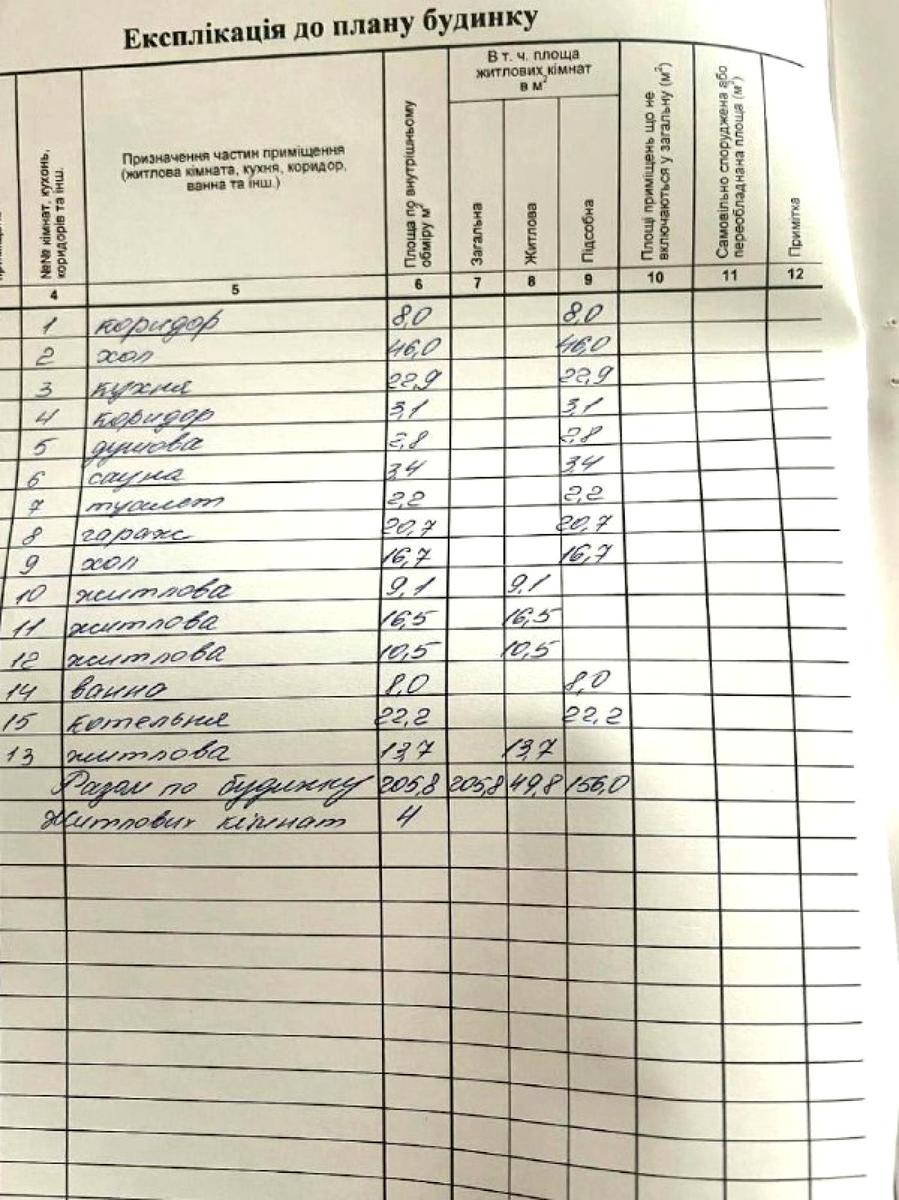 Експлікація до плану будинку
№№ кімнат, кухонь, коридорів та інш.
Призначення частин приміщення
(житлова кімната, кухня, коридор,
ванна та інш.)
Площа по внутрішньому обміру м²
В т. ч. площа
житлових кімнат
в м²
Загальна
Житлова
Підсобна
Площі приміщень що не включаються у загальну (м²)
Самовільно споруджена або переобладнана площа (м²)
Примітка
4 5 6 7 8 9 10 11 12
1 коридор 8,0 8,0
2 хол 46,0 46,0
3 кухня 22,9 22,9
4 коридор 3,1 3,1
5 душова 2,8 2,8
6 сауна 3,4 3,4
7 туалет 2,2 2,2
8 гараж 20,7 20,7
9 хол 16,7 16,7
10 житлова 9,1 9,1
11 житлова 16,5 16,5
12 житлова 10,5 10,5
14 ванна 8,0 8,0
15 котельня 22,2 22,2
13 житлова 13,7 13,7
Разом по будинку 205,8 205,8 49,8 156,0
Житлових кімнат 4